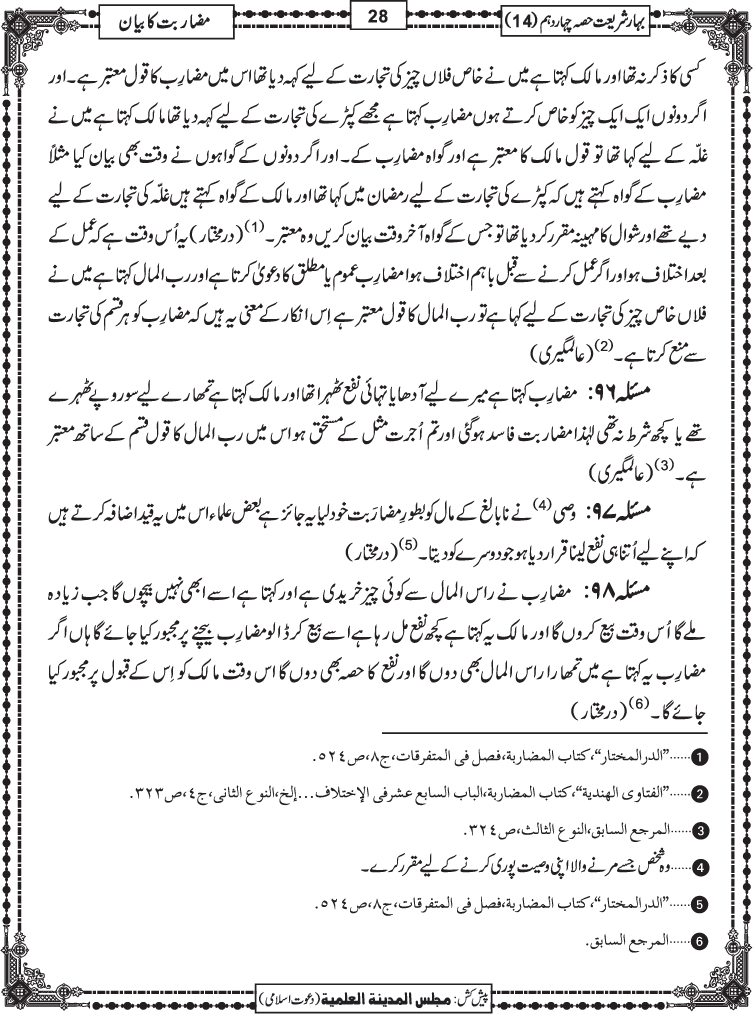 بہار شریعت حصہ چہاردہم (14)
28
مضاربت کا بیان
کسی کا ذکر نہ تھا اور مالک کہتا ہے میں نے خاص فلاں چیز کی تجارت کے لیے کہہ دیا تھا اس میں مضارِب کا قول معتبر ہے۔ اور
اگر دونوں ایک ایک چیز کو خاص کرتے ہوں مضارِب کہتا ہے مجھے کپڑے کی تجارت کے لیے کہہ دیا تھا مالک کہتا ہے میں نے
غلّہ کے لیے کہا تھا تو قول مالک کا معتبر ہے اور گواہ مضارِب کے۔ اور اگر دونوں کے گواہوں نے وقت بھی بیان کیا مثلاً
مضارِب کے گواہ کہتے ہیں کہ کپڑے کی تجارت کے لیے رمضان میں کہا تھا اور مالک کے گواہ کہتے ہیں غلّہ کی تجارت کے لیے
دیے تھے اور شوال کا مہینہ مقرر کر دیا تھا تو جس کے گواہ آخر وقت بیان کریں وہ معتبر۔(1) (درمختار) یہ اُس وقت ہے کہ عمل کے
بعد اختلاف ہو اور اگر عمل کرنے سے قبل باہم اختلاف ہوا مضارِب عموم یا مطلق کا دعویٰ کرتا ہے اور رب المال کہتا ہے میں نے
فلاں خاص چیز کی تجارت کے لیے کہا ہے تو رب المال کا قول معتبر ہے اِس انکار کے معنی یہ ہیں کہ مضارِب کو ہر قسم کی تجارت
سے منع کرتا ہے۔(2) (عالمگیری)
مسئلہ ۹۶: مضارِب کہتا ہے میرے لیے آدھا یا تہائی نفع ٹھہرا تھا اور مالک کہتا ہے تمہارے لیے سو روپے ٹھہرے
تھے یا کچھ شرط نہ تھی لہٰذا مضاربت فاسد ہوگئی اور تم اُجرت مثل کے مستحق ہو اس میں رب المال کا قول قسم کے ساتھ معتبر
ہے۔(3) (عالمگیری)
مسئلہ ۹۷: وصی(4) نے نابالغ کے مال کو بطورِ مضارَبت خود لیا یہ جائز ہے بعض علماء اس میں یہ قید اضافہ کرتے ہیں
کہ اپنے لیے اُتنا ہی نفع لینا قرار دیا ہو جو دوسرے کو دیتا۔(5) (درمختار)
مسئلہ ۹۸: مضارِب نے راس المال سے کوئی چیز خریدی ہے اور کہتا ہے اسے ابھی نہیں بیچوں گا جب زیادہ
ملے گا اُس وقت بیع کروں گا اور مالک یہ کہتا ہے کچھ نفع مل رہا ہے اسے بیع کر ڈالو مضارِب بیچنے پر مجبور کیا جائے گا ہاں اگر
مضارِب یہ کہتا ہے میں تمھارا راس المال بھی دوں گا اور نفع کا حصہ بھی دوں گا اس وقت مالک کو اِس کے قبول پر مجبور کیا
جائے گا۔(6) (درمختار)
1 ......"الدرالمختار"، کتاب المضاربة، فصل فی المتفرقات، ج۸، ص٥٢٤.
2 ......"الفتاوی الھندیة"، کتاب المضاربة، الباب السابع عشرفی الإختلاف...إلخ، النوع الثانی، ج٤، ص٣٢٣.
3 ......المرجع السابق، النوع الثالث، ص٣٢٤.
4 ......وہ شخص جسے مرنے والا اپنی وصیت پوری کرنے کے لیے مقرر کرے۔
5 ......"الدرالمختار"، کتاب المضاربة، فصل فی المتفرقات، ج۸، ص٥٢٤.
6 ......المرجع السابق.
پیش کش: مجلس المدینۃ العلمیۃ (دعوت اسلامی)